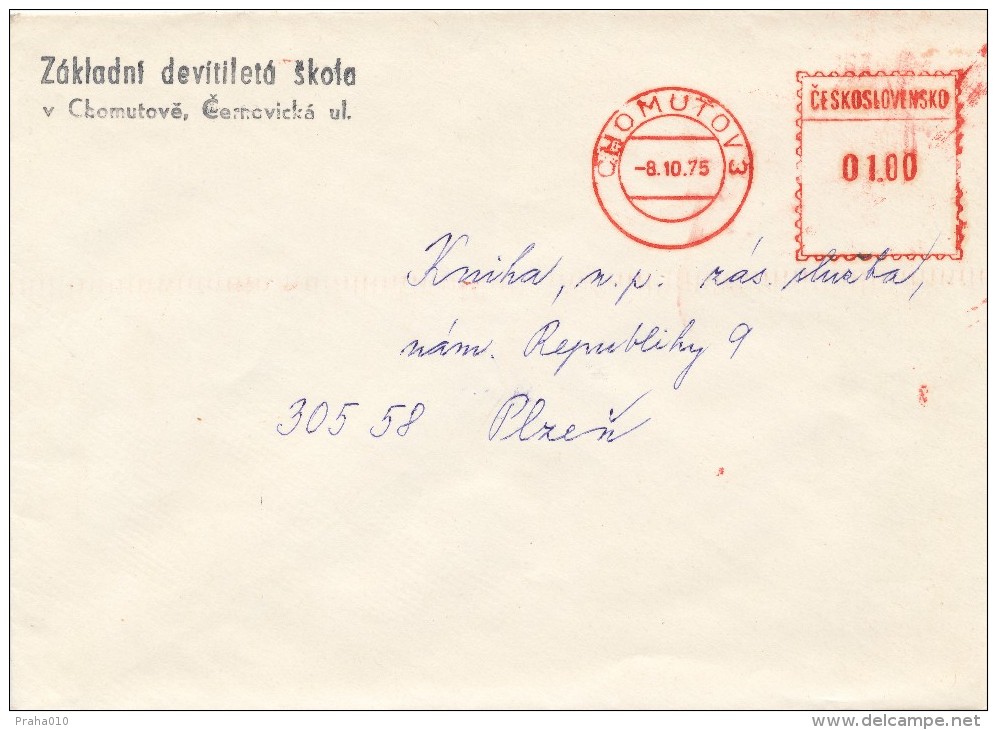 Základní devítiletá škola
v Chomutově, Černovická ul.
CHOMUTOV 3
-8.10.75
ČESKOSLOVENSKO
01.00
Kniha, n.p. zás. služba,
nám. Republiky 9
305 58 Plzeň
Praha010
delcampe.net